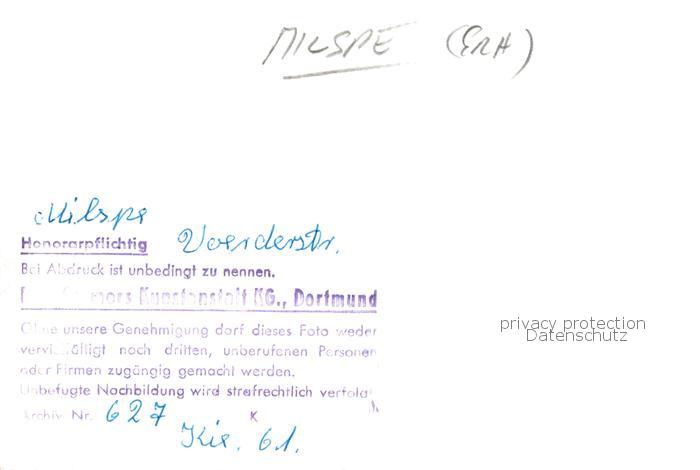 MILSPE (ErH)
Milspe
Honorarpflichtig Voerderstr.
Bei Abdruck ist unbedingt zu nennen.
Kunstanstalt KG., Dortmund
Ohne unsere Genehmigung darf dieses Foto weder
vervielfältigt noch dritten, unberufenen Personen
oder Firmen zugängig gemacht werden.
Unbefugte Nachbildung wird strafrechtlich verfolgt
Archiv Nr. 627 K
61.
privacy protection
Datenschutz